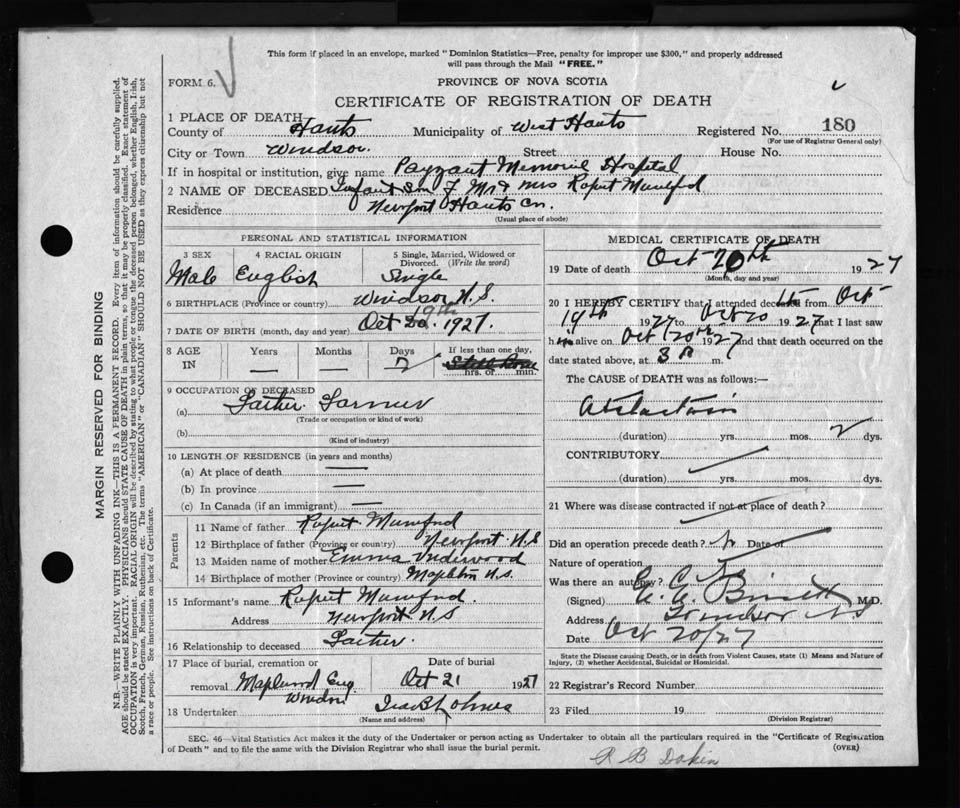 This form if placed in an envelope, marked "Dominion Statistics—Free, penalty for improper use $300," and properly addressed
will pass through the Mail "FREE."
FORM 6.
PROVINCE OF NOVA SCOTIA
CERTIFICATE OF REGISTRATION OF DEATH
1 PLACE OF DEATH—
County of Hants Municipality of West Hants Registered No. 180
(For use of Registrar General only)
City or Town Windsor. Street House No.
If in hospital or institution, give name Payzant Memorial Hospital
2 NAME OF DECEASED Infant Son of Mr & Mrs Rupert Mumford
Residence Newport Hants Co.
(Usual place of abode)
PERSONAL AND STATISTICAL INFORMATION
3 SEX 4 RACIAL ORIGIN 5 Single, Married, Widowed or Divorced. (Write the word)
Male English Single
6 BIRTHPLACE (Province or country) Windsor N.S.
7 DATE OF BIRTH (month, day and year) Oct 19th 1927.
8 AGE IN Years Months Days If less than one day,
— — 2 Still Born hrs. or min.
9 OCCUPATION OF DECEASED
(a) Father Farmer
(Trade or occupation or kind of work)
(b)
(Kind of industry)
10 LENGTH OF RESIDENCE (in years and months)
(a) At place of death —
(b) In province —
(c) In Canada (if an immigrant) —
Parents
11 Name of father Rupert Mumford
12 Birthplace of father (Province or country) Newport N.S
13 Maiden name of mother Emma Underwood
14 Birthplace of mother (Province or country) N.S.
15 Informant's name Rupert Mumford.
Address Newport N.S
16 Relationship to deceased Father.
17 Place of burial, cremation or removal Date of burial
Maplewood Windsor Oct 21 1927
18 Undertaker Holmes
(Name and address)
MEDICAL CERTIFICATE OF DEATH
19 Date of death Oct 20th 1927
(Month, day and year)
20 I HEREBY CERTIFY that I attended deceased from Oct
19th 1927 to Oct 20 1927 that I last saw
him alive on Oct 20th 1927 and that death occurred on the
date stated above, at 3 m.
The CAUSE of DEATH was as follows:—
Atelectasis
(duration) yrs. mos. 2 dys.
CONTRIBUTORY
(duration) yrs. mos. dys.
21 Where was disease contracted if not at place of death?
Did an operation precede death? No Date of
Nature of operation
Was there an autopsy? No
(Signed) M.D.
Address Windsor NS
Date Oct 20/27
State the Disease causing Death, or in death from Violent Causes, state (1) Means and Nature of
Injury, (2) whether Accidental, Suicidal or Homicidal.
22 Registrar's Record Number
23 Filed 19
(Division Registrar)
SEC. 46—Vital Statistics Act makes it the duty of the Undertaker or person acting as Undertaker to obtain all the particulars required in the "Certificate of Registration
of Death" and to file the same with the Division Registrar who shall issue the burial permit. (OVER)
R B Dakin
MARGIN RESERVED FOR BINDING
N.B.—WRITE PLAINLY WITH UNFADING INK—THIS IS A PERMANENT RECORD. Every item of information should be carefully supplied.
AGE should be stated EXACTLY. PHYSICIANS should STATE CAUSE OF DEATH in plain terms, so that it may be properly classified. Exact statement of
OCCUPATION is very important. RACIAL ORIGIN will be described by stating to what people or tongue the deceased person belonged, whether English, Irish,
Scotch, French, German, Russian, Ruthenian, etc. The terms "AMERICAN" or "CANADIAN" SHOULD NOT BE USED as they express citizenship but not
a race or people. See instructions on back of Certificate.